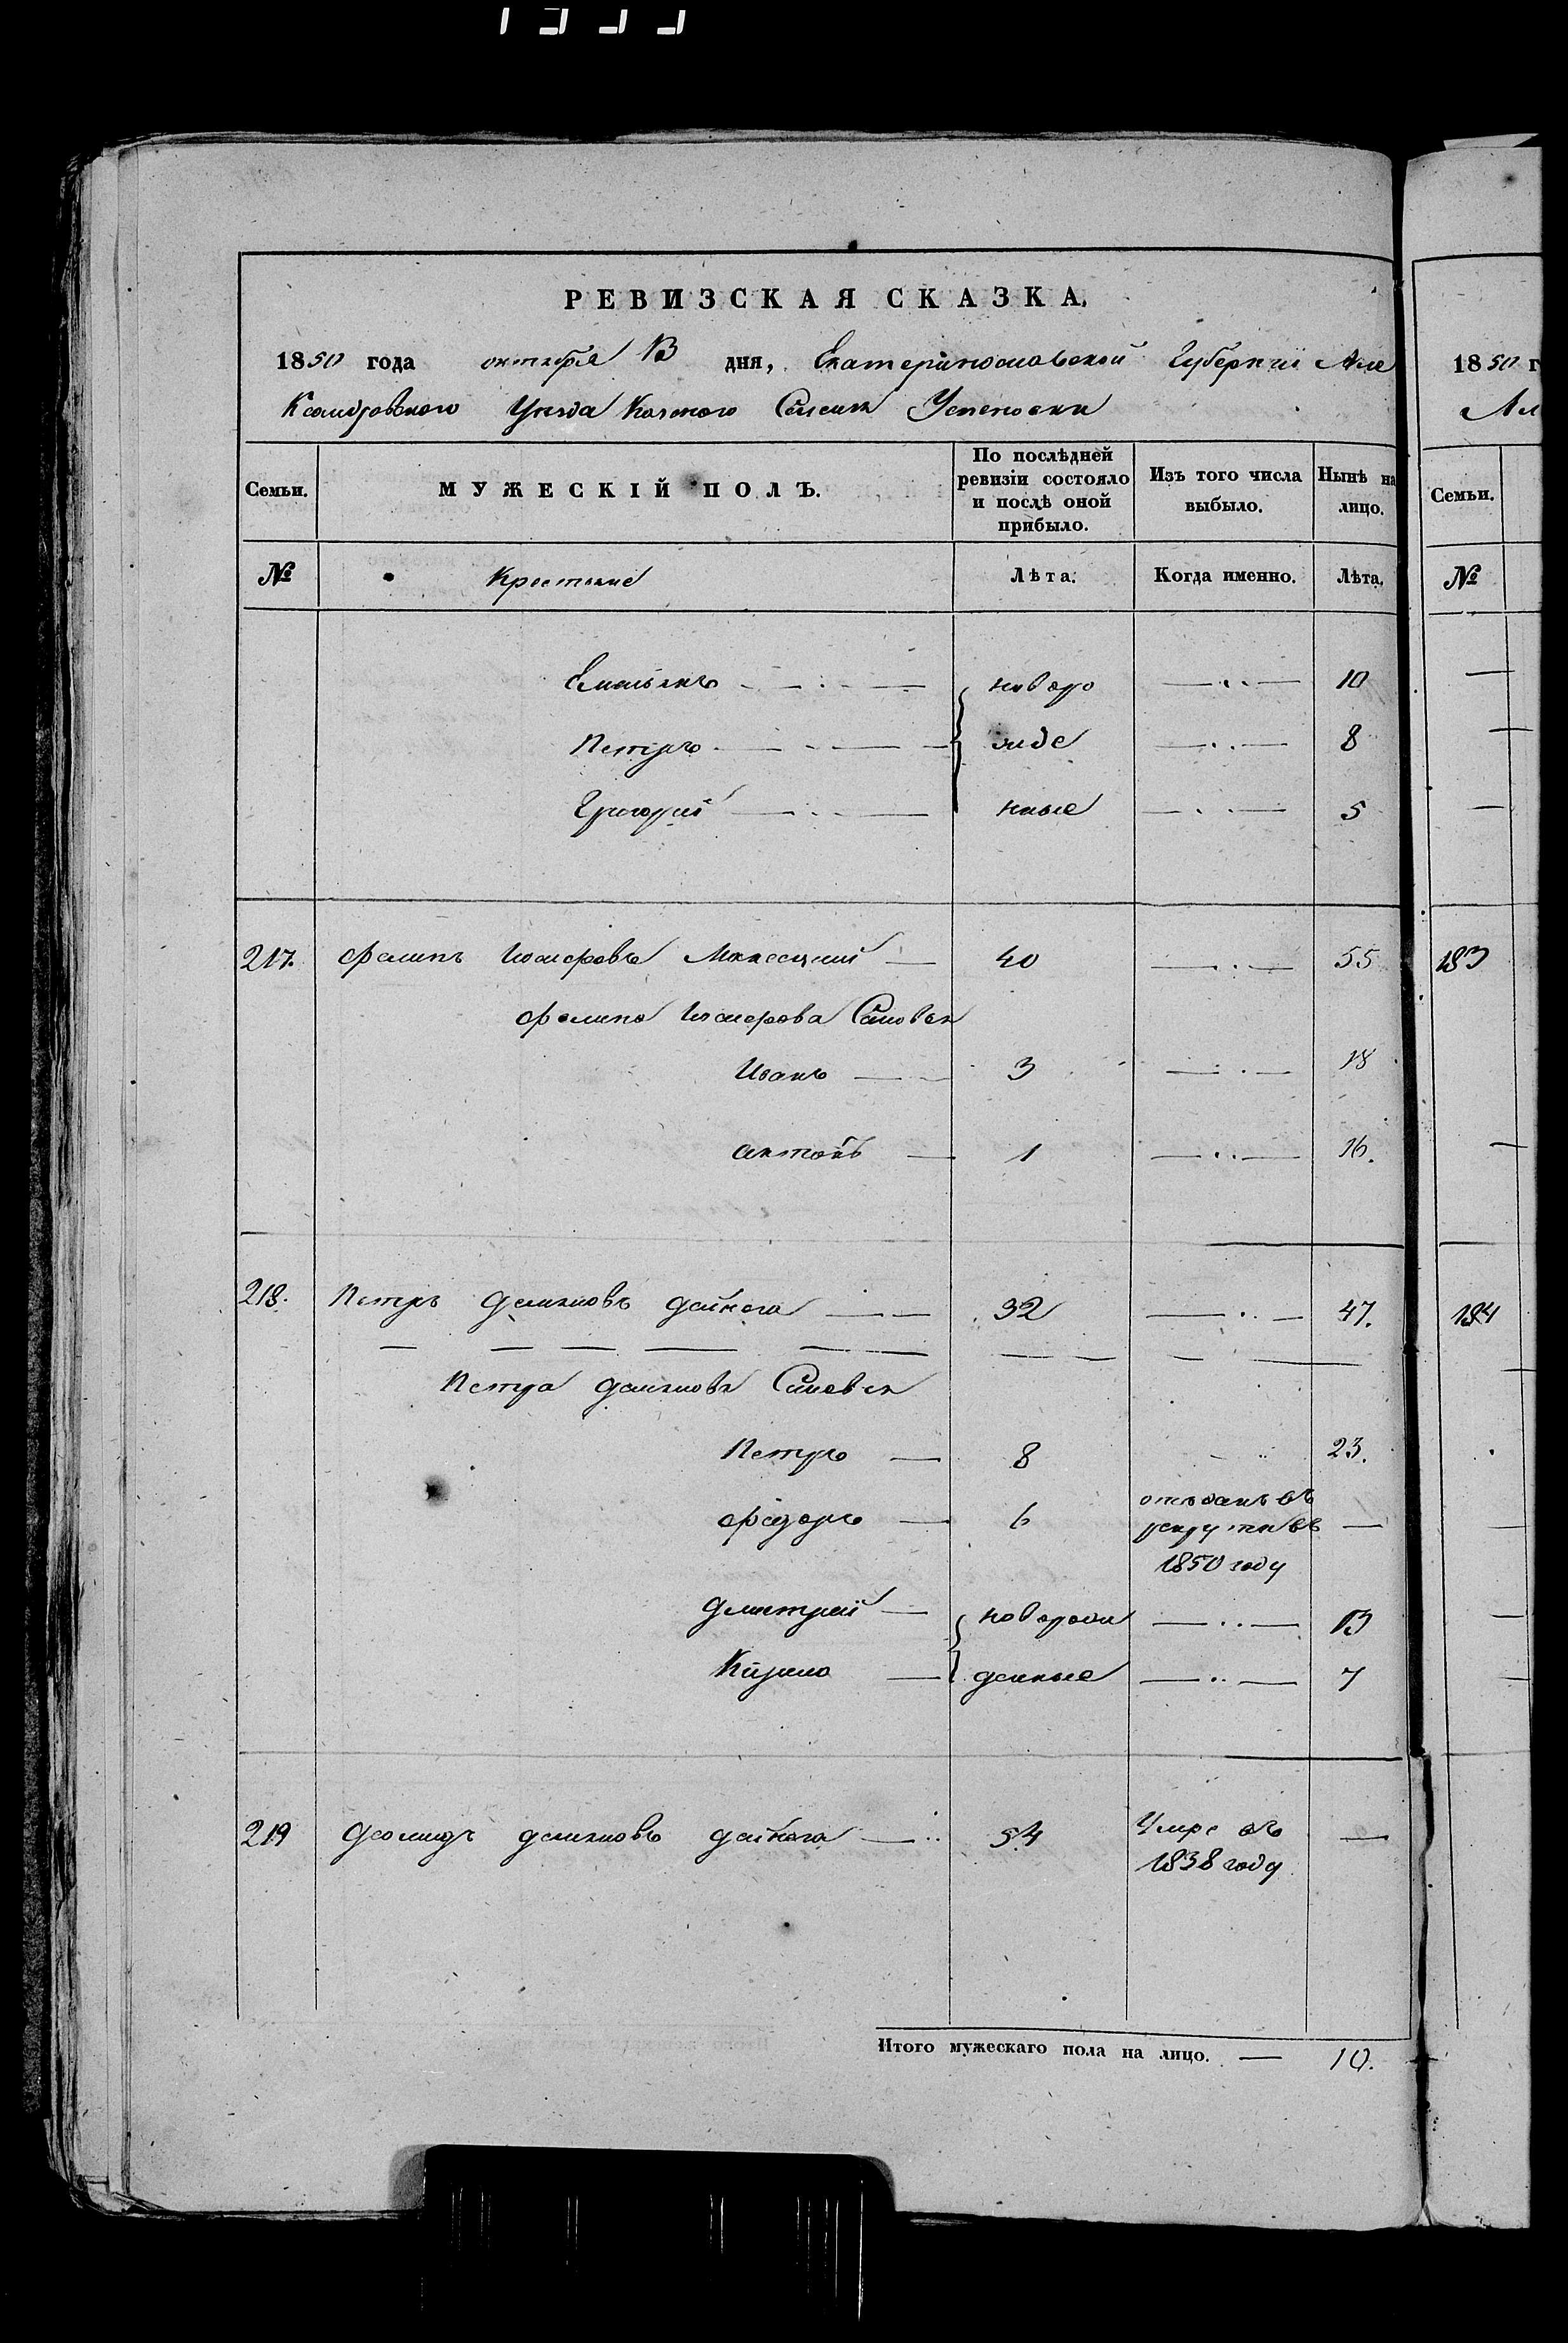 РЕВИЗСКАЯ СКАЗКА.
1850 года октября 13 дня, Екатеринославской Губернии Але
ксандровского Уезда Казеного Селения Успеновки
Семьи. МУЖЕСКІЙ ПОЛЪ. По послѣдней ревизіи состояло и послѣ оной прибыло. Изъ того числа выбыло. Нынѣ на лицо.
№ Крестьяне Лѣта. Когда именно. Лѣта.
Емельянъ новоро 10
Петръ жде 8
Григорий ные 5
217. Филипъ 40 55
Филипа Сыновья
Иванъ 3 18
Антонъ 1 16.
218. Петръ Демяновъ Дейнега 32 47.
Петра Демянова Сыновья
Петръ 8 23.
Фёдоръ 6 отъданъ въ
рекруты въ
1850 году
Дмитрий новорож 13
Кирило денные 7
219 Демяновъ Дейнега 54 Умре въ
1838 году
Итого мужескаго пола на лицо. — 10.
1850 г
Ал
Семьи.
№
183
184